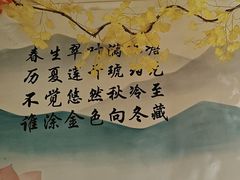 春生翠叶满
历夏连琥
不觉悠然秋冷至
谁涂金色向冬藏